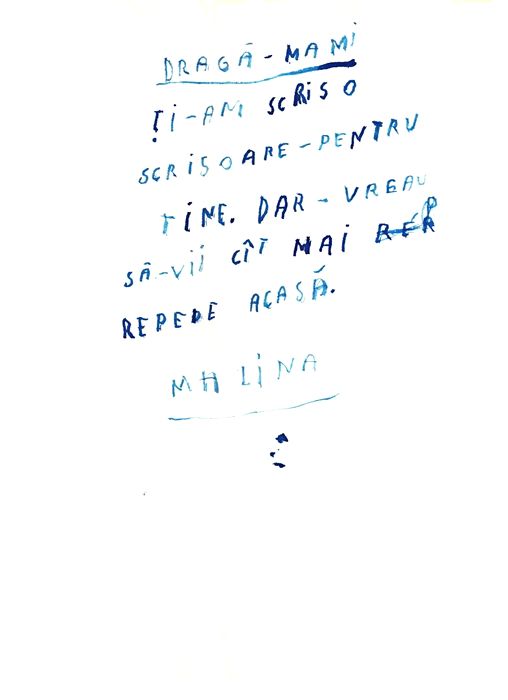 DRAGĂ-MAMI
ȚI-AM SCRIS O
SCRISOARE-PENTRU
TINE. DAR-VREAU
SĂ-VII CÎT MAI
REPEDE ACASĂ.
MALINA